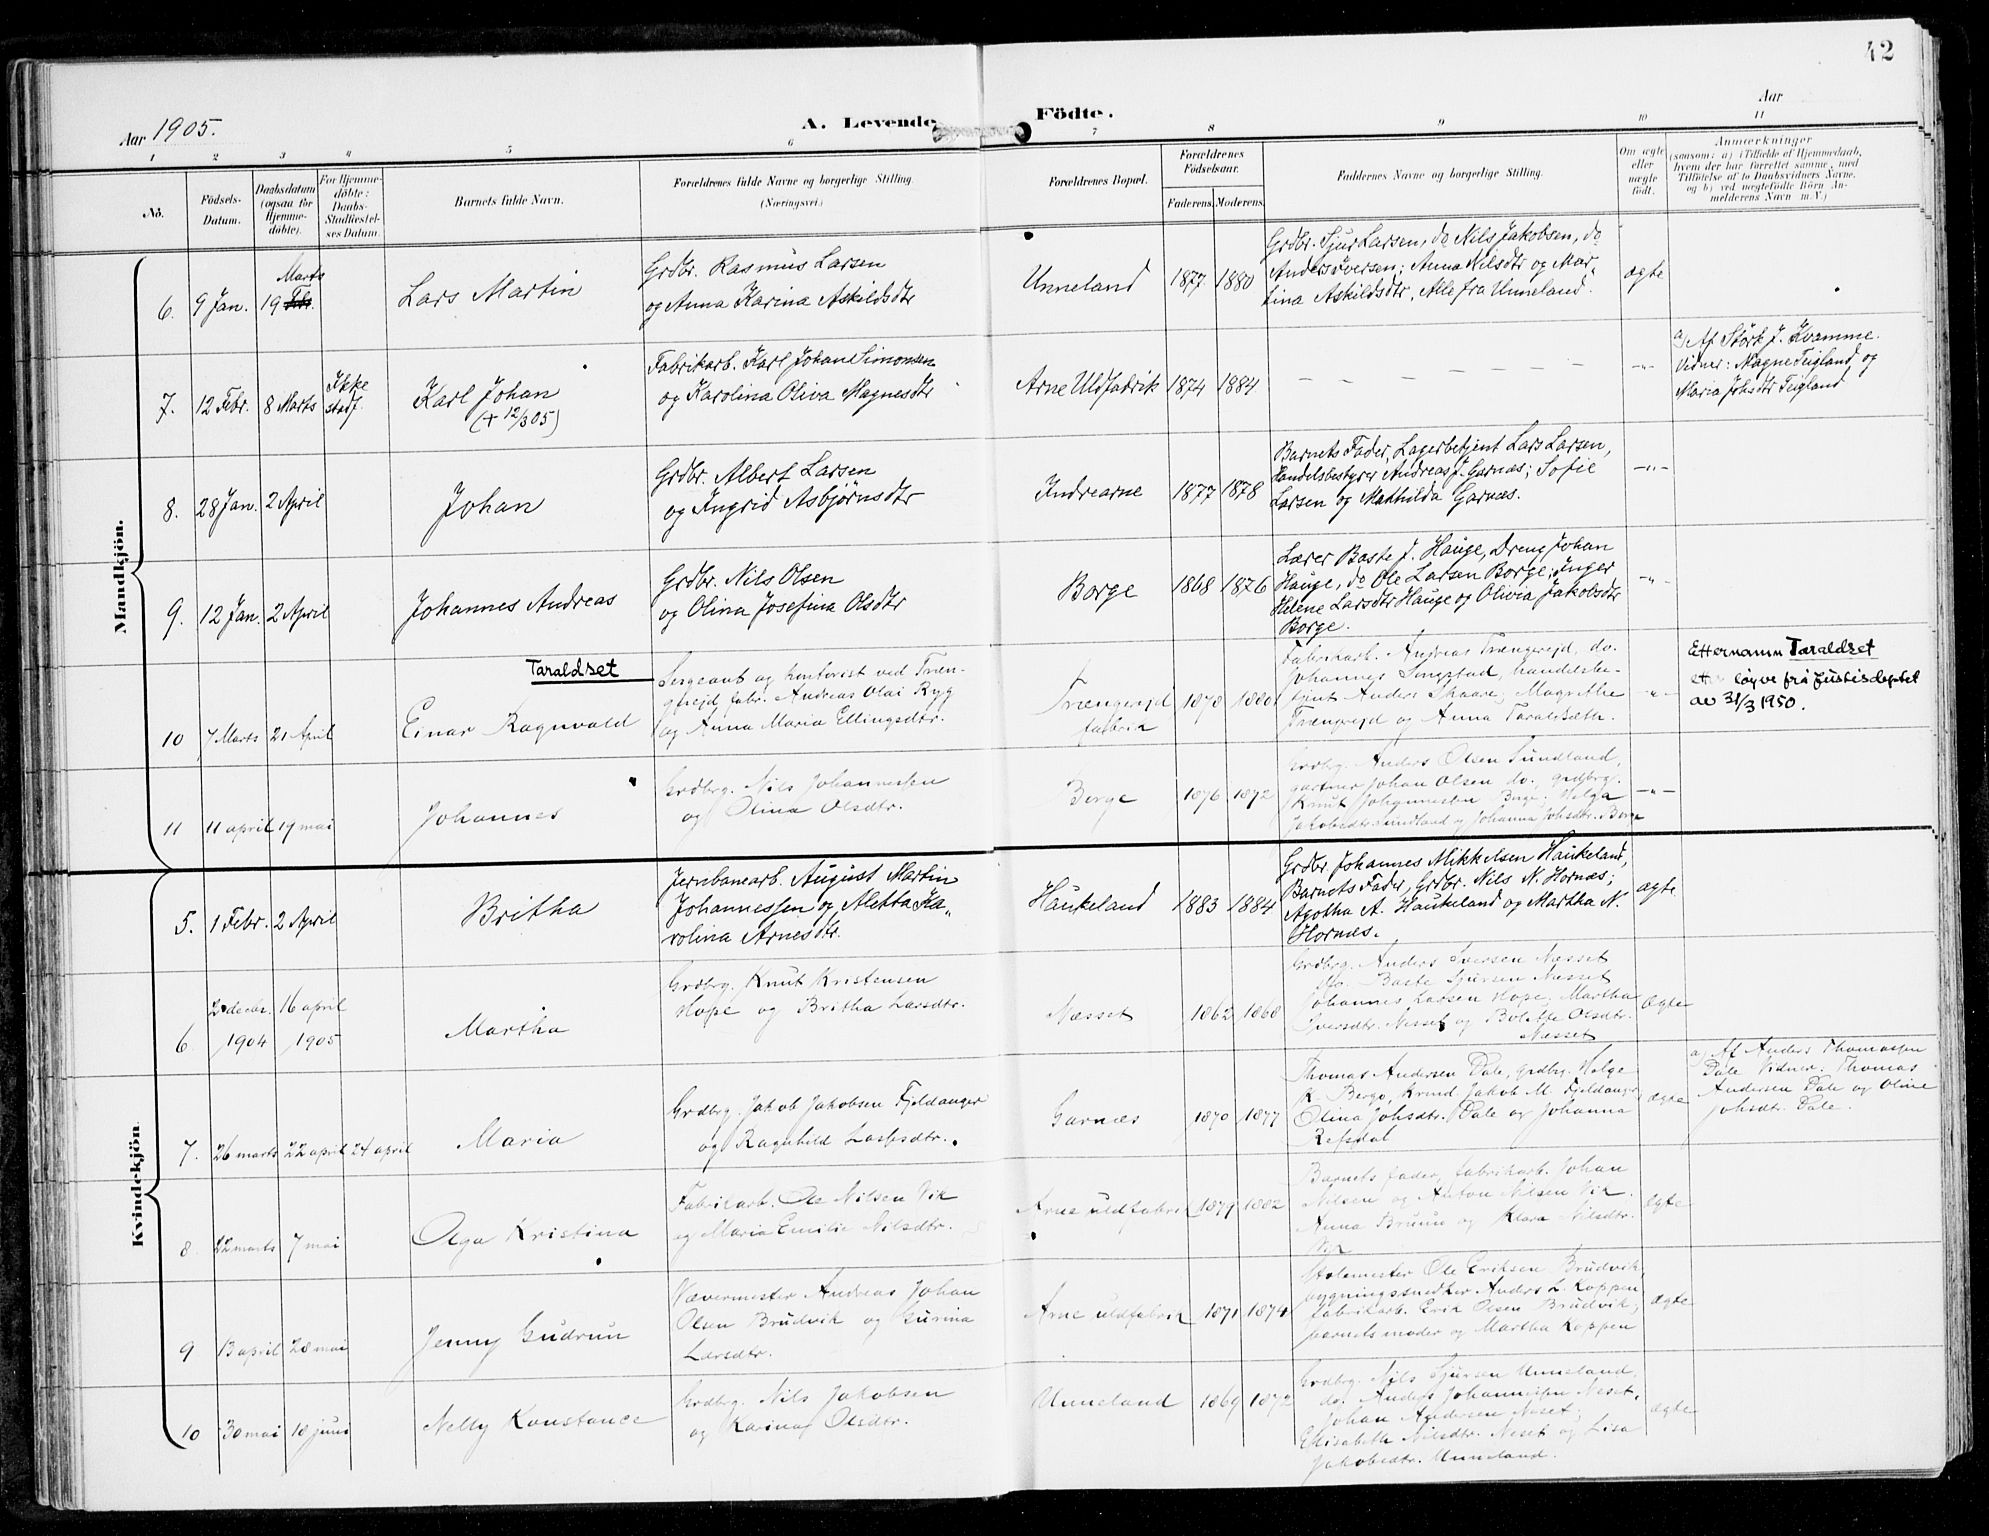 42
Aar 1905.
A. Levende Födte.
Aar
1 2 3 4 5 6 7 8 9 10 11
No.
Födsels-
Datum.
Daabsdatum
(ogsaa for
Hjemme-
døbte).
For Hjemme-
døbte:
Daabs-
Stadfæstel-
ses Datum.
Barnets fulde Navn.
Forældrenes fulde Navne og borgerlige Stilling.
(Næringsvei.)
Forældrenes Bopæl.
Forældrenes
Födselsaar.
Faderens. Moderens.
Faddernes Navne og borgerlige Stilling.
Om ægte
eller
uægte
født.
Anmærkninger
(saasom: a) i Tilfælde af Hjemmedaab,
hvem der har forrettet samme, med
Tilføielse af to Daabsvidners Navne,
og b) ved uægtefødte Børn An-
melderens Navn m. V.)
Mandkjön.
6. 9 Jan. 19 Febr. Marts
Lars Martin
Grdbr. Rasmus Larsen
og Anna Karina Askildsdtr
Unneland 1877 1880
Grdbr. Sjur Larsen, do Nils Jakobsen, do
Anders Iversen; Anna Nilsdtr og Mar-
tina Askildsdtr, Alle fra Unneland.
ægte
7. 12 Febr. 8 Marts Ikke
stadf.
Karl Johan
(+ 12/3 05)
Fabrikarb. Karl Johan Simonsen
og Karolina Oliva Magnesdtr
Arne Uldfabrik 1874 1884
— — — — — — —
-"-
a) Af Størk J. Kvamme.
Vidner: Magne Teigland og
Maria Johsdtr Teigland
8. 28 Jan. 2 April
Johan
Grdbr. Albert Larsen
og Ingrid Asbjørnsdtr
Indrearne 1877 1878
Barnets Fader, Lagerbetjent Lars Larsen,
Handelsbestyrer Andreas J. Garnæs; Sofie
Larsen og Mathilda Garnæs.
-"-
9. 12 Jan. 2 April
Johannes Andreas
Grdbr. Nils Olsen
og Olina Josefina Olsdtr
Borge 1868 1876
Lærer Baste J. Hauge, Dreng Johan
Hauge, do Ole Larsen Borge; Inger
Helene Larsdtr Hauge og Olivia Jakobsdtr
Borge.
-"-
10 7 Marts 21 April
Taraldset
Einar Ragnvald
Sergeant og kontorist ved Træn-
gereid fabr. Andreas Olai Ryg
og Anna Maria Ellingsdtr.
Trængereid
fabrik 1878 1880
Fabrikarb. Andreas Trængereid, do.
Johannes Lingstad, handelsbe-
tjent Anders Skaare; Magrethe
Trængereid og Anna Taraldsæth.
-"-
Etternamn Taraldset
etter løyve frå Justisdeptet
av 31/3 1950.
11 11 april 19 mai
Johannes
Grdbrg. Nils Johannessen
og Olina Olsdtr.
Borge 1876 1872
Grdbrg. Anders Olsen Sundland,
gartner Johan Olsen do., grdbrg.
Knut Johannessen Borge; Helga
Jakobsdtr. Sundland og Johanna Johsdtr. Borge
-"-
Kvindekjön
5. 1 Febr. 2 April
Britha
Jernbanearb. August Martin
Johannessen og Aletta Ka-
rolina Arnesdtr.
Haukeland 1883 1884
Grdbr Johannes Mikkelsen Haukeland,
Barnets Fader, Grdbr. Nils N. Hornæs;
Agotha A. Haukeland og Martha N.
Hornæs.
ægte
6 decbr. 1904 16 april 1905
Martha
Grdbrg. Knut Kristensen
Hope og Britha Larsdtr.
Næsset 1862 1868
Grdbrg. Anders Iversen Næsset
do. Baste Sjursen Næsset
Johannes Larsen Hope; Martha
Iversdtr. Nesset og Bolette Olsdtr.
Næsset
ægte
7. 26 marts 22 april 24 april
Maria
Grdbrg. Jakob Jakobsen Fjeldanger
og Ragnhild Lassesdtr.
Garnæs 1870 1877
Thomas Andersen Dale, grdbrg. Helge
K. Borge, Krmd. Jakob M. Fjeldanger
Olina Johsdtr. Dale og Johanna
Refsdal
ægte
a) Af Anders Thomassen
Dale Vidner: Thomas
Andersen Dale og Oline
Johsdtr. Dale.
8. 22 marts 7 mai
Olga Kristina
Fabrikarb. Ole Nilsen Vik
og Maria Emilie Nilsdtr.
Arne uldfabrik 1879 1882
Barnets fader, fabrikarb. Johan
Nilsen og Anton Nilsen Vik.
Anna Bruun og Klara Nilsdtr.
Vik
ægte
9 13 april 28 mai
Jenny Gudrun
Vævermester Andreas Johan
Olsen Brudvik og Gurina
Larsdtr.
Arne uldfabrik 1871 1874
Stolemester Ole Eriksen Brudvik,
bygningssnedker Anders L. Koppen
fabrikarb. Erik Olsen Brudvik;
barnets moder og Martha Koppen
ægte
10 30 mai 18 juni
Nelly Konstance
Grdbrg. Nils Jakobsen
og Karina Olsdtr.
Unneland 1869 1872
Grdbrg. Nils Sjursen Unneland,
do. Anders Johannessen Neset,
Johan Andersen Neset;
Elisabeth Nilsdtr. Neset og Lisa
Jakobsdtr. Unneland.
ægte